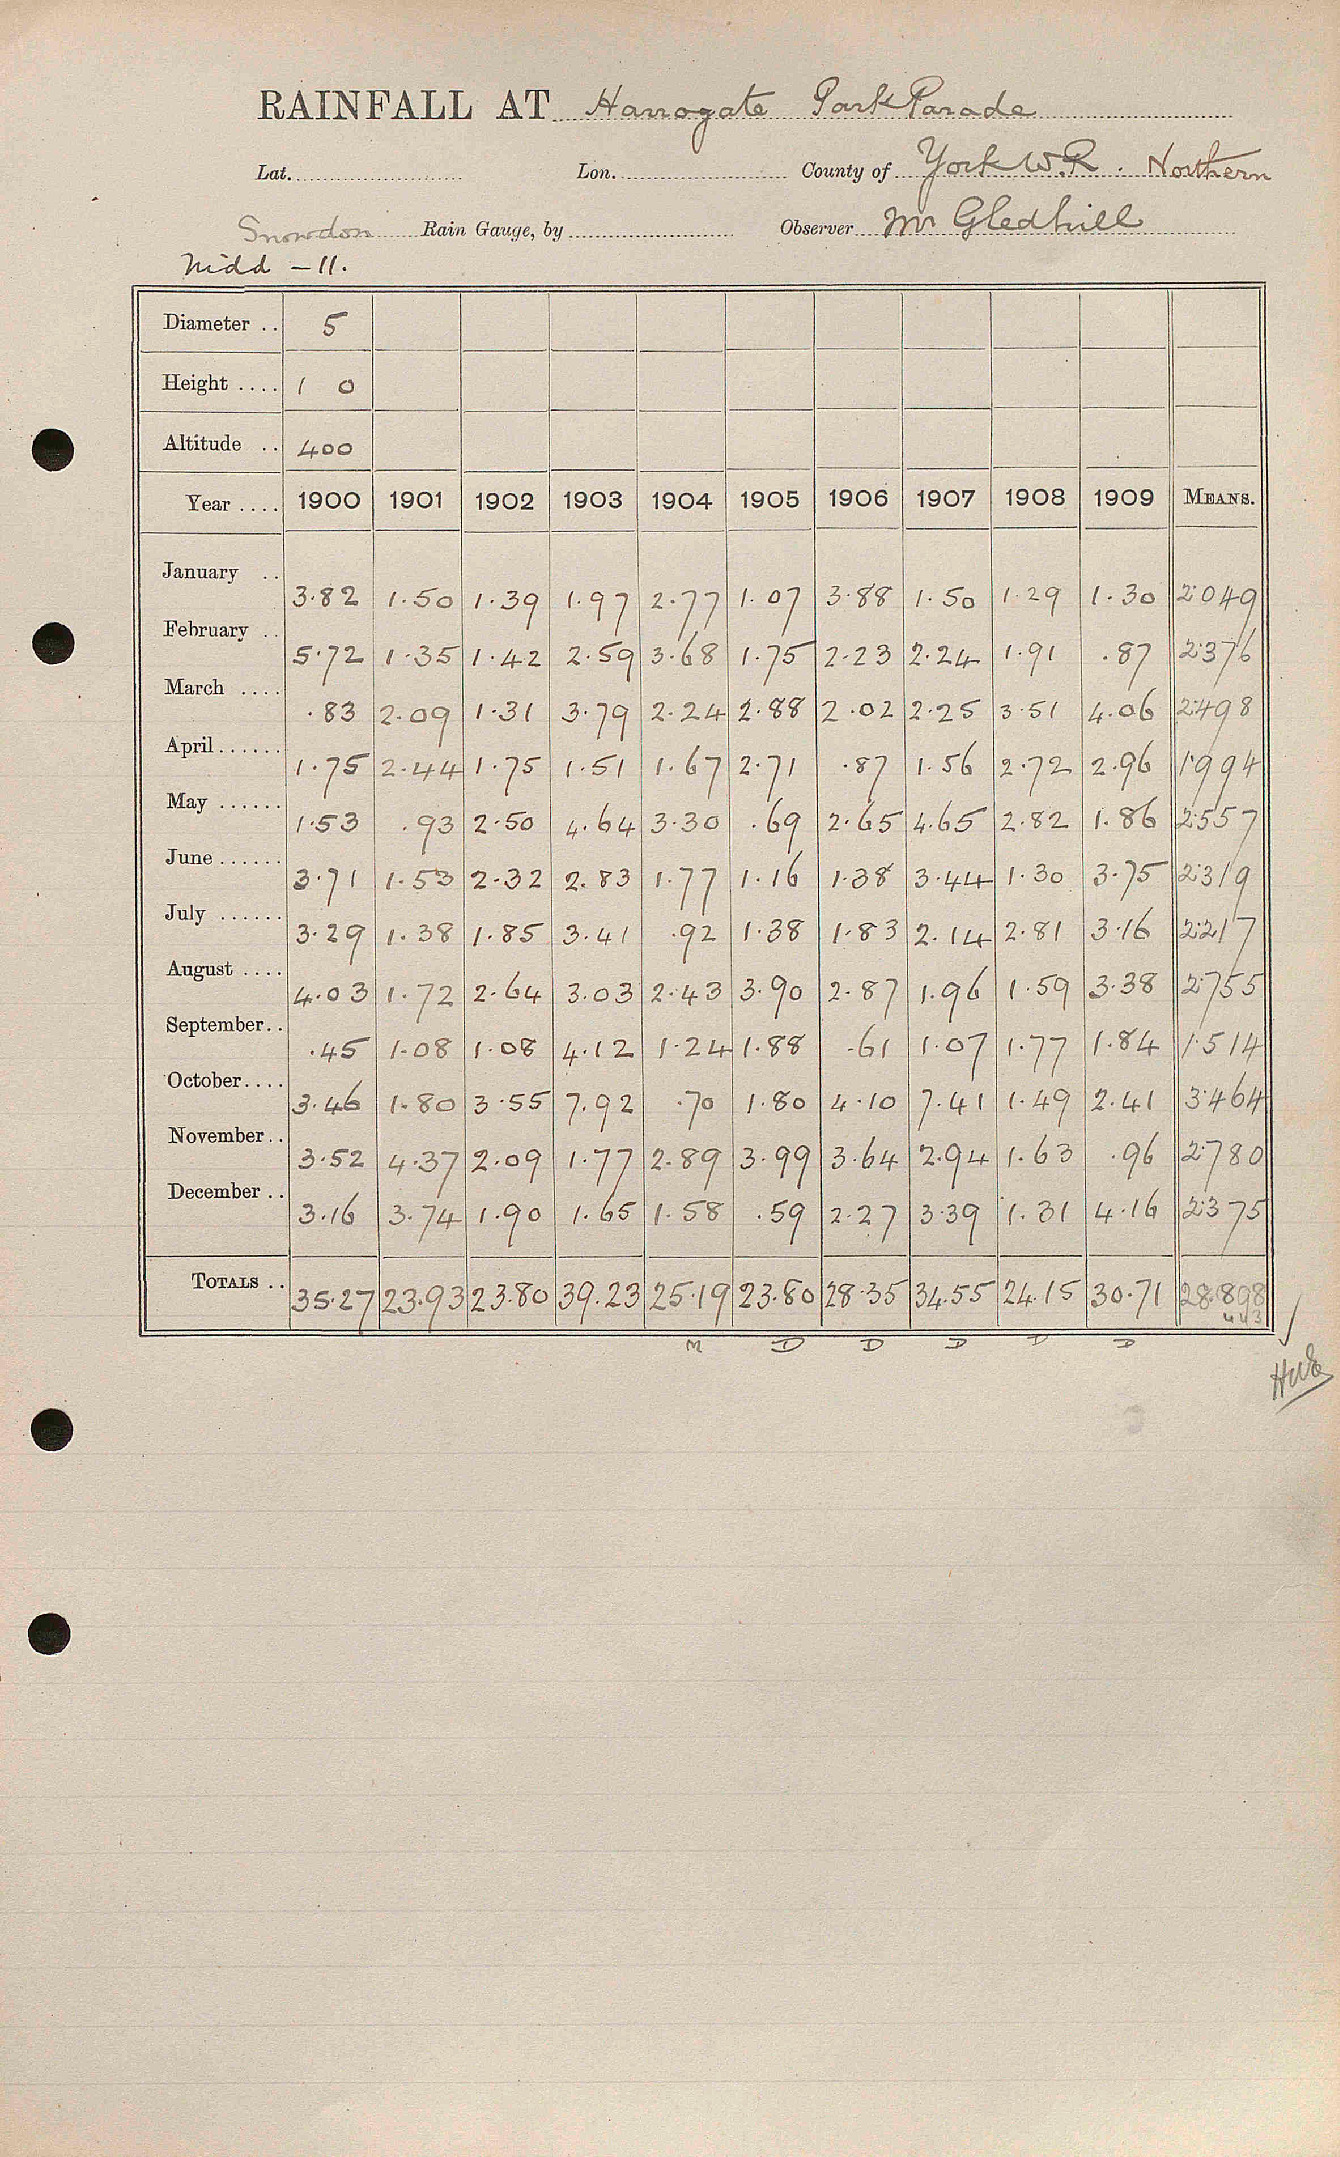 RAINFALL AT Harrogate Park Parade
Lat. Lon. County of York W.R. Northern
Snowdon Rain Gauge, by Observer Mr Gledhill
Nidd - 11.
Diameter .. 5
Height .... 1 0
Altitude .. 400
Year .... 1900 1901 1902 1903 1904 1905 1906 1907 1908 1909 MEANS.
January .. 3.82 1.50 1.39 1.97 2.77 1.07 3.88 1.50 1.29 1.30 2.049
February .. 5.72 1.35 1.42 2.59 3.68 1.75 2.23 2.24 1.91 .87 2.376
March .... .83 2.09 1.31 3.79 2.24 2.88 2.02 2.25 3.51 4.06 2.498
April...... 1.75 2.44 1.75 1.51 1.67 2.71 .87 1.56 2.72 2.96 1.994
May ...... 1.53 .93 2.50 4.64 3.30 .69 2.65 4.65 2.82 1.86 2.557
June ...... 3.71 1.53 2.32 2.83 1.77 1.16 1.38 3.44 1.30 3.75 2.319
July ...... 3.29 1.38 1.85 3.41 .92 1.38 1.83 2.14 2.81 3.16 2.217
August .... 4.03 1.72 2.64 3.03 2.43 3.90 2.87 1.96 1.59 3.38 2.755
September.. .45 1.08 1.08 4.12 1.24 1.88 .61 1.07 1.77 1.84 1.514
October.... 3.46 1.80 3.55 7.92 .70 1.80 4.10 7.41 1.49 2.41 3.464
November.. 3.52 4.37 2.09 1.77 2.89 3.99 3.64 2.94 1.63 .96 2.780
December .. 3.16 3.74 1.90 1.65 1.58 .59 2.27 3.39 1.31 4.16 2.375
TOTALS .. 35.27 23.93 23.80 39.23 25.19 23.80 28.35 34.55 24.15 30.71 28.898
443
M D D D D D